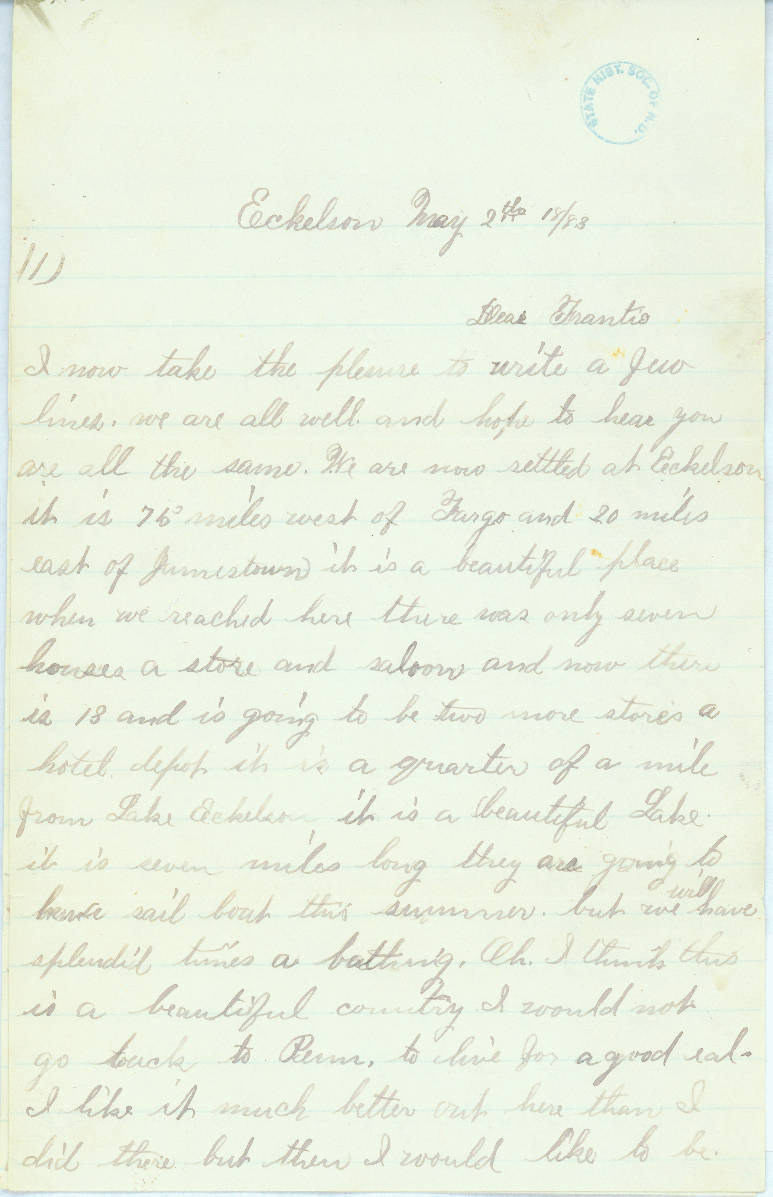 STATE HIST. SOC. OF N.D.
Eckelson May 2th 18/83
11)
Dear Frantio
I now take the plesure to write a few
lines. we are all well. and hope to hear you
are all the same. We are now settled at Eckelson
it is 76 miles west of Fargo and 20 miles
east of Jumestown it is a beautiful place
when we reached here there was only seven
houses a store and saloon and now there
is 18 and is going to be two more stores a
hotel depot it is a quarter of a mile
from Lake Eckelson it is a beautiful Lake.
it is seven miles long they are going to
have sail boat this summer. but we will have
splendid times a bathing. Oh. I think this
is a beautiful country I would not
go back to Penn. to live for a good eal-
I like it much better out here than I
did there but then I would like to be.